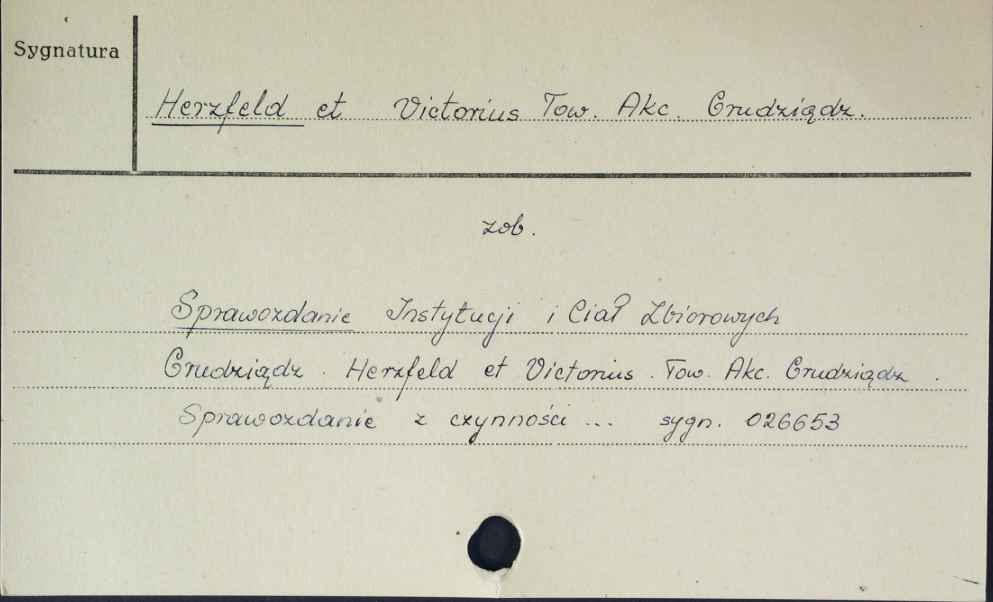 Sygnatura
Herzfeld et Victorius Tow. Akc. Grudziądz.
zob.
Sprawozdanie Instytucji i Ciał Zbiorowych
Grudziądz. Herzfeld et Victorius. Tow. Akc. Grudziądz.
Sprawozdanie z czynności ... sygn. 026653